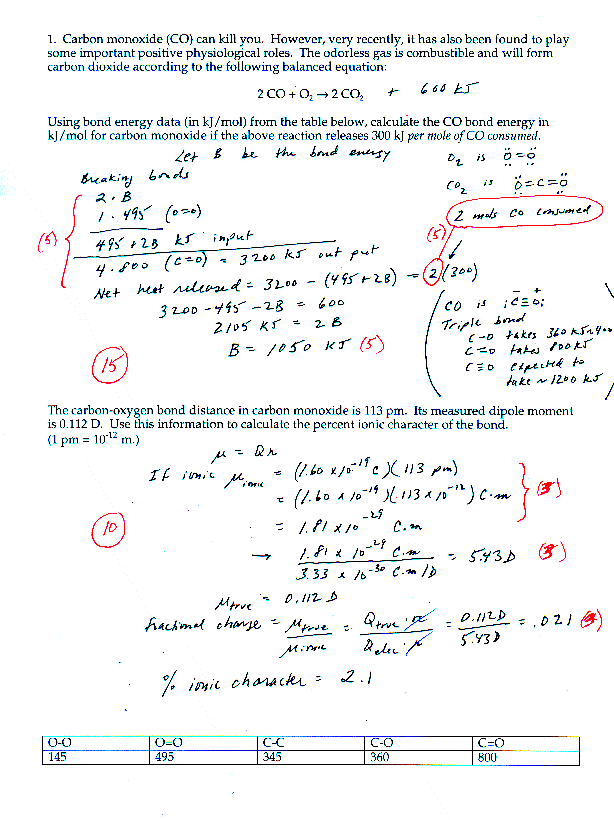 1. Carbon monoxide (CO) can kill you. However, very recently, it has also been found to play
some important positive physiological roles. The odorless gas is combustible and will form
carbon dioxide according to the following balanced equation:
2 CO + O₂ → 2 CO₂ + 600 kJ
Using bond energy data (in kJ/mol) from the table below, calculate the CO bond energy in
kJ/mol for carbon monoxide if the above reaction releases 300 kJ per mole of CO consumed.
Let B be the bond energy
O₂ is Ö=Ö
Breaking bonds
CO₂ is Ö=C=Ö
2 · B
1 · 495 (O=O)
2 mols CO consumed
(5)
495 + 2B kJ input
(5)
4 · 800 (C=O) = 3200 kJ out put
Net heat released = 3200 - (495 + 2B) = 2(300)
3200 - 495 - 2B = 600
2105 kJ = 2B
B = 1050 kJ (5)
15
CO is :C≡O:
- +
Triple bond
C-O takes 360 kJ
C=O takes 800 kJ
C≡O expected to
take ~ 1200 kJ
The carbon-oxygen bond distance in carbon monoxide is 113 pm. Its measured dipole moment
is 0.112 D. Use this information to calculate the percent ionic character of the bond.
(1 pm = 10⁻¹² m.)
μ = QR
If ionic μ ionic = (1.60 x 10⁻¹⁹ C)(113 pm)
= (1.60 x 10⁻¹⁹)(113 x 10⁻¹²) C·m
(3)
= 1.81 x 10⁻²⁹ C.m
10
→ 1.81 x 10⁻²⁹ C.m / 3.33 x 10⁻³⁰ C.m/D = 5.43 D (3)
μ true = 0.112 D
fractional charge = μ true / μ ionic = Q true · R / Q elec · R = 0.112 D / 5.43 D = .021 (4)
% ionic character = 2.1
O-O O=O C-C C-O C=O
145 495 345 360 800